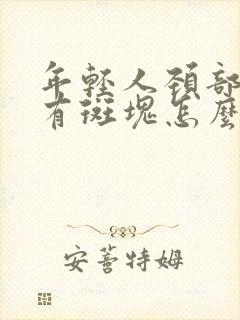 年轻人颈部
有斑塊怎麼
安蓉特姆